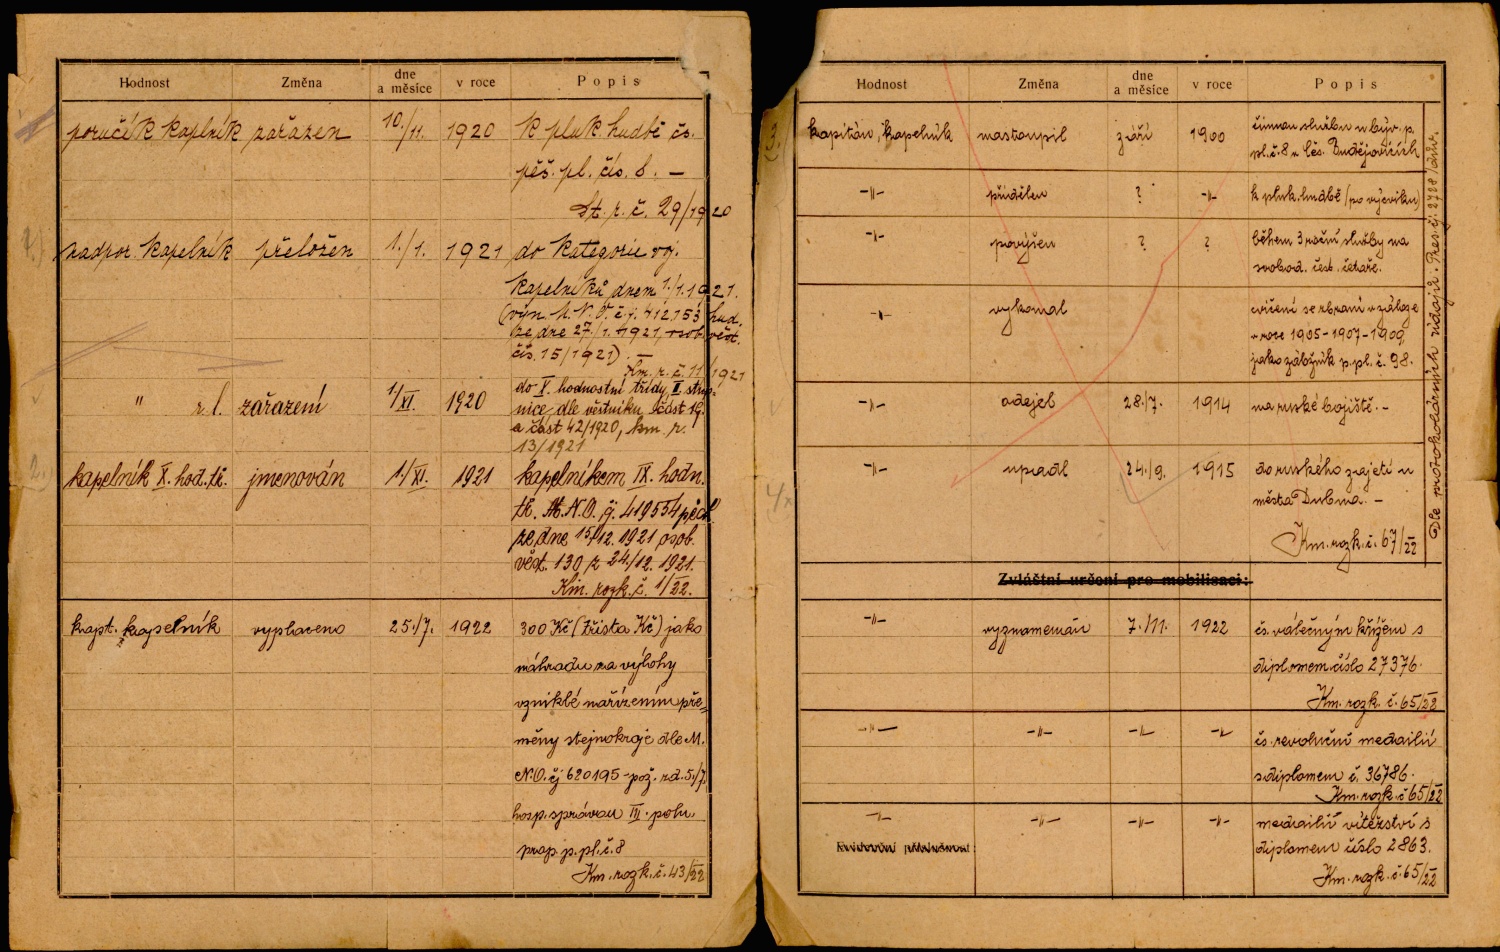 Hodnost Změna dne a měsíce v roce Popis
poručík kaplník zařazen 10./11. 1920 k pluk hudbě čs.
pěš. pl. čís. 8. —
St. r. č. 29/1920
nadpor. kapelník přeložen 1./1. 1921 do kategorie voj.
kapelníků dnem 1./1.1921.
(výn. M. N. O. č.j. 412.153 hud.
ze dne 27./1. 1921, osob. věst.
čís. 15/1921). —
Km. r. č. 11/1921
do X. hodnostní třídy, II. stup-
" r. l. zařazení 1/XI. 1920 nice, dle věstníku, část 19.
a část 42/1920, km. r.
13/1921
2. kapelník X. hod. tř. jmenován 1/XI. 1921 kapelníkem IX. hodn.
tř. M.N.O. čj. 419554 pěch.
ze dne 15/12. 1921 osob.
věst. 130 z 24/12. 1921.
Km. rozk. č. 1/22.
kapt. kapelník vyplaceno 25./7. 1922 300 Kč (třista Kč) jako
náhradu za výlohy
vzniklé nařízením pře-
měny stejnokroje dle M.
N.O. čj 620195 - pož. rd. 5./7.
hosp. správou III. polu.
prap. p. pl. č. 8
Km. rozk. č. 43/22
Hodnost Změna dne a měsíce v roce Popis
kapitán, kapelník nastoupil září 1900 činnou službu u býv. p.
pl. č. 8 v Čes. Budějovicích
-"- přidělen ? -"- k pluk. hudbě (po výcviku)
-"- povýšen ? ? během 3 roční služby na
svobod. čest. četaře.
-"- vykonal cvičení se zbraní v záloze
v roce 1905-1907-1909
jako záložník p. pl. č. 98.
-"- odejel 28./7. 1914 na ruské bojiště. -
-"- upadl 24./9. 1915 do ruského zajetí u
města Dubna. -
Km. rozk. č. 67/22
Dle protokolárních údajů. Pres. čj. 2728/dův.
Zvláštní určení pro mobilisaci:
-"- vyznamenán 7./11. 1922 čs. válečným křížem s
diplomem číslo 27376.
Km. rozk. č. 65/22
-"- -"- -"- -"- čs. revoluční medailií
s diplomem č. 36786.
Km. rozk. č 65/22
-"- -"- -"- -"- medailií vítězství s
diplomem číslo 2863.
Km. rozk. č. 65/22